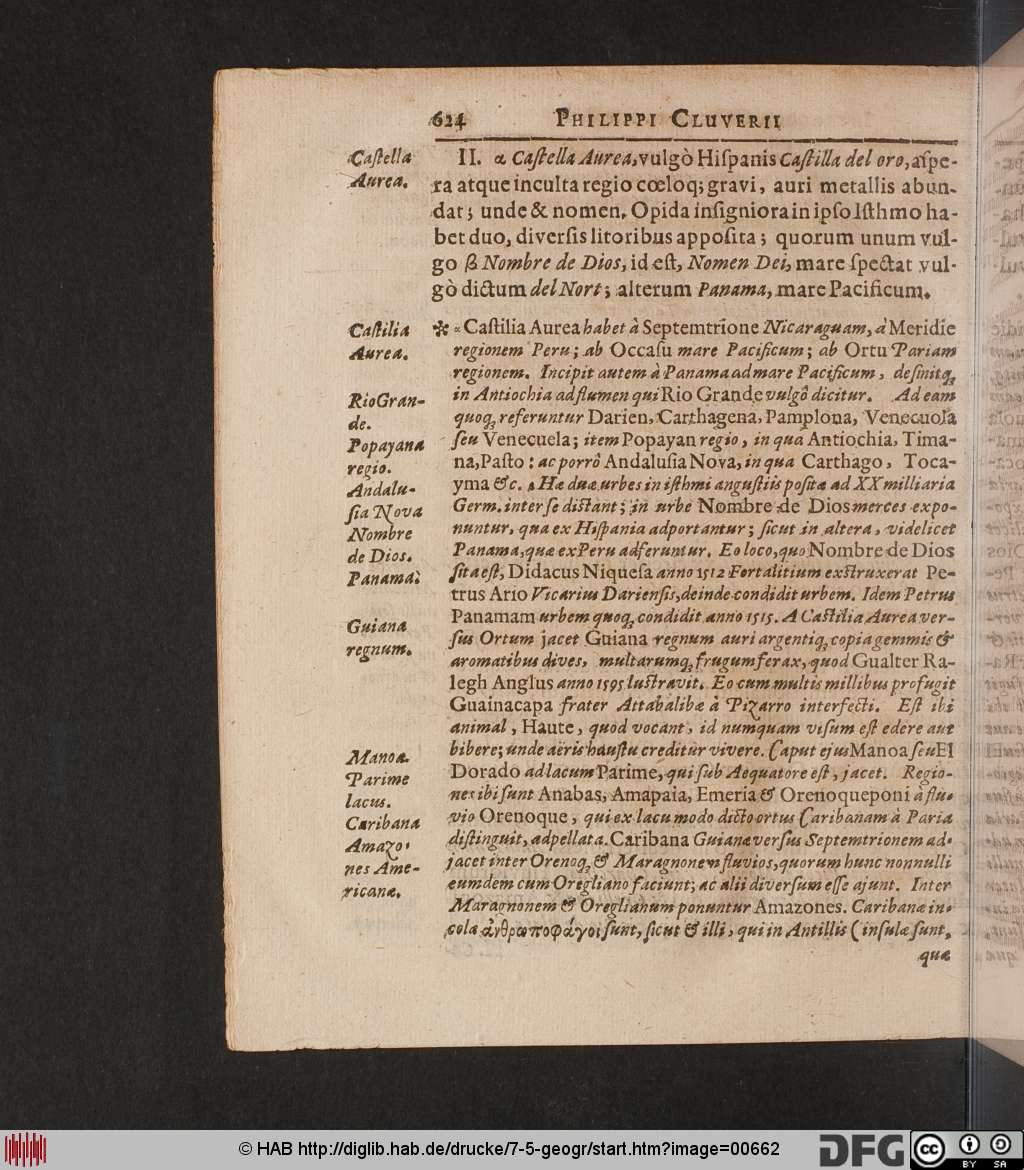 624 PHILIPPI CLUVERII
Caſtella
Aurea.
II. α Caſtella Aurea, vulgò Hiſpanis Caſtilla del oro, aſpe-
ra atque inculta regio cœloq; gravi, auri metallis abun-
dat; unde & nomen. Opida inſigniora in ipſo Iſthmo ha-
bet duo, diverſis litoribus appoſita; quorum unum vul-
go β Nombre de Dios, id eſt, Nomen Dei, mare ſpectat vul-
gò dictum del Nort; alterum Panama, mare Pacificum.
Caſtilia
Aurea.
RioGran-
de.
Popayana
regio.
Andalu-
ſia Nova
Nombre
de Dios.
Panama:
Guiana
regnum.
Manoa.
Parime
lacus.
Caribana
Amazo-
nes Ame-
ricanæ.
✻ α Caſtilia Aurea habet à Septemtrione Nicaraguam, à Meridie
regionem Peru; ab Occaſu mare Pacificum; ab Ortu Pariam
regionem. Incipit autem à Panama ad mare Pacificum, deſinitq́;
in Antiochia ad flumen qui Rio Grande vulgò dicitur. Ad eam
quoq; referuntur Darien, Carthagena, Pamplona, Venecuola
ſeu Venecuela; item Popayan regio, in qua Antiochia, Tima-
na, Paſto: ac porrò Andaluſia Nova, in qua Carthago, Toca-
yma &c. β Hæ duæ urbes in iſthmi anguſtiis poſitæ ad XX milliaria
Germ. inter ſe diſtant; in urbe Nombre de Dios merces expo-
nuntur, qua ex Hiſpania adportantur; ſicut in altera, videlicet
Panama, quæ ex Peru adferuntur. Eo loco, quo Nombre de Dios
ſita eſt, Didacus Niqueſa anno 1512 Fortalitium exſtruxerat Pe-
trus Ario Vicarius Darienſis, deinde condidit urbem. Idem Petrus
Panamam urbem quoq; condidit anno 1515. A Caſtilia Aurea ver-
ſus Ortum jacet Guiana regnum auri argentiq; copia gemmis &
aromatibus dives, multarumq; frugum ferax, quod Gualter Ra-
legh Anglus anno 1595 luſtravit. Eo cum multis millibus profugit
Guainacapa frater Attabalibæ à Pizarro interfecti. Eſt ibi
animal, Haute, quod vocant, id numquam viſum eſt edere aut
bibere; unde aëris hauſtu creditur vivere. Caput ejus Manoa ſeu El
Dorado ad lacum Parime, qui ſub Aequatore eſt, jacet. Regio-
nes ibi ſunt Anabas, Amapaia, Emeria & Orenoqueponi à flu-
vio Orenoque, qui ex lacu modo dicto ortus Caribanam à Paria
diſtinguit, adpellata. Caribana Guianæ verſus Septemtrionem ad-
jacet inter Orenoq; & Maragnonem fluvios, quorum hunc nonnulli
eumdem cum Oregliano faciunt; ac alii diverſum eſſe ajunt. Inter
Maragnonem & Oreglianum ponuntur Amazones. Caribanæ in-
colæ ἀνθρωποφάγοι ſunt, ſicut & illi, qui in Antillis (inſulæ ſunt,
quæ
© HAB http://diglib.hab.de/drucke/7-5-geogr/start.htm?image=00662
DFG
cc BY SA